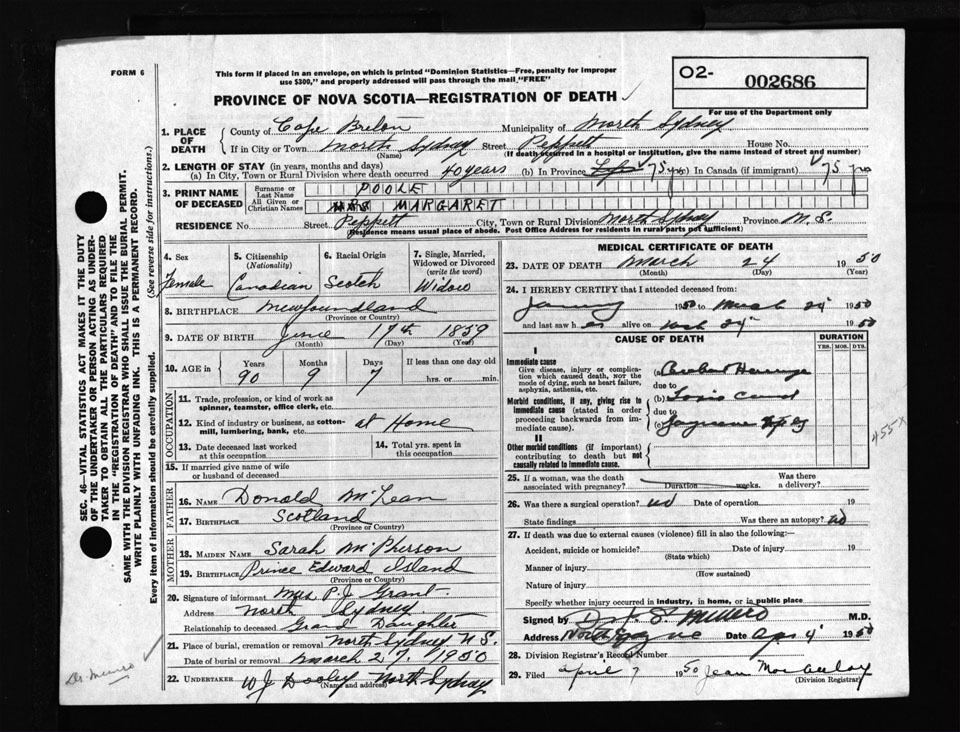 FORM 6
This form if placed in an envelope, on which is printed "Dominion Statistics—Free, penalty for improper
use $300," and properly addressed will pass through the mail "FREE"
O2- 002686
For use of the Department only
PROVINCE OF NOVA SCOTIA—REGISTRATION OF DEATH
1. PLACE OF DEATH
County of Cape Breton Municipality of North Sydney
If in City or Town North Sydney Street Peppett House No.
(Name) (If death occurred in a hospital or institution, give the name instead of street and number)
2. LENGTH OF STAY (in years, months and days)
(a) In City, Town or Rural Division where death occurred 40 years (b) In Province 75 yrs (c) In Canada (if immigrant) 75 yrs
3. PRINT NAME OF DECEASED
Surname or Last Name POOLE
All Given or Christian Names MRS MARGARET
RESIDENCE No. Street Peppett City, Town or Rural Division North Sydney Province N.S.
(Residence means usual place of abode. Post Office Address for residents in rural parts not sufficient)
4. Sex Female
5. Citizenship (Nationality) Canadian
6. Racial Origin Scotch
7. Single, Married, Widowed or Divorced (write the word) Widow
8. BIRTHPLACE Newfoundland
(Province or Country)
9. DATE OF BIRTH June 17th 1859
(Month) (Day) (Year)
10. AGE in Years Months Days If less than one day old
90 9 7 hrs. or min.
OCCUPATION
11. Trade, profession, or kind of work as
spinner, teamster, office clerk, etc.
12. Kind of industry or business, as cotton-
mill, lumbering, bank, etc. at Home
13. Date deceased last worked
at this occupation
14. Total yrs. spent in
this occupation
15. If married give name of wife
or husband of deceased
FATHER
16. NAME Donald McLean
17. BIRTHPLACE Scotland
(Province or Country)
MOTHER
18. MAIDEN NAME Sarah McPherson
19. BIRTHPLACE Prince Edward Island
(Province or Country)
20. Signature of informant Mrs P.J. Grant
Address North Sydney
Relationship to deceased Grand Daughter
21. Place of burial, cremation or removal North Sydney N.S.
Date of burial or removal March 27, 1950
22. UNDERTAKER W J Dooley North Sydney
(Name and address)
MEDICAL CERTIFICATE OF DEATH
23. DATE OF DEATH March 24 1950
(Month) (Day) (Year)
24. I HEREBY CERTIFY that I attended deceased from:
January 1950 to March 24 1950
and last saw her alive on March 24 1950
CAUSE OF DEATH
DURATION
YRS. MOS. DYS.
I
Immediate cause
Give disease, injury or complica-
tion which caused death, NOT the
mode of dying, such as heart failure,
asphyxia, asthenia, etc.
(a)
due to
Morbid conditions, if any, giving rise to
immediate cause (stated in order
proceeding backwards from im-
mediate cause).
(b)
due to
(c)
II
Other morbid conditions (if important)
contributing to death but not
causally related to immediate cause.
455X
25. If a woman, was the death
associated with pregnancy? Duration weeks. Was there
a delivery?
26. Was there a surgical operation? no Date of operation 19
State findings Was there an autopsy? no
27. If death was due to external causes (violence) fill in also the following:—
Accident, suicide or homicide? Date of injury 19
(State which)
Manner of injury
(How sustained)
Nature of injury
Specify whether injury occurred in industry, in home, or in public place
Signed by M.D.
Address Date Apr 4 1950
28. Division Registrar's Record Number
29. Filed April 7 1950 Jean
(Division Registrar)
SEC. 46—VITAL STATISTICS ACT MAKES IT THE DUTY
OF THE UNDERTAKER OR PERSON ACTING AS UNDER-
TAKER TO OBTAIN ALL THE PARTICULARS REQUIRED
IN THE "REGISTRATION OF DEATH" AND TO FILE THE
SAME WITH THE DIVISION REGISTRAR WHO SHALL ISSUE THE BURIAL PERMIT.
WRITE PLAINLY WITH UNFADING INK. THIS IS A PERMANENT RECORD.
Every item of information should be carefully supplied. (See reverse side for instructions.)
Dr. Munro